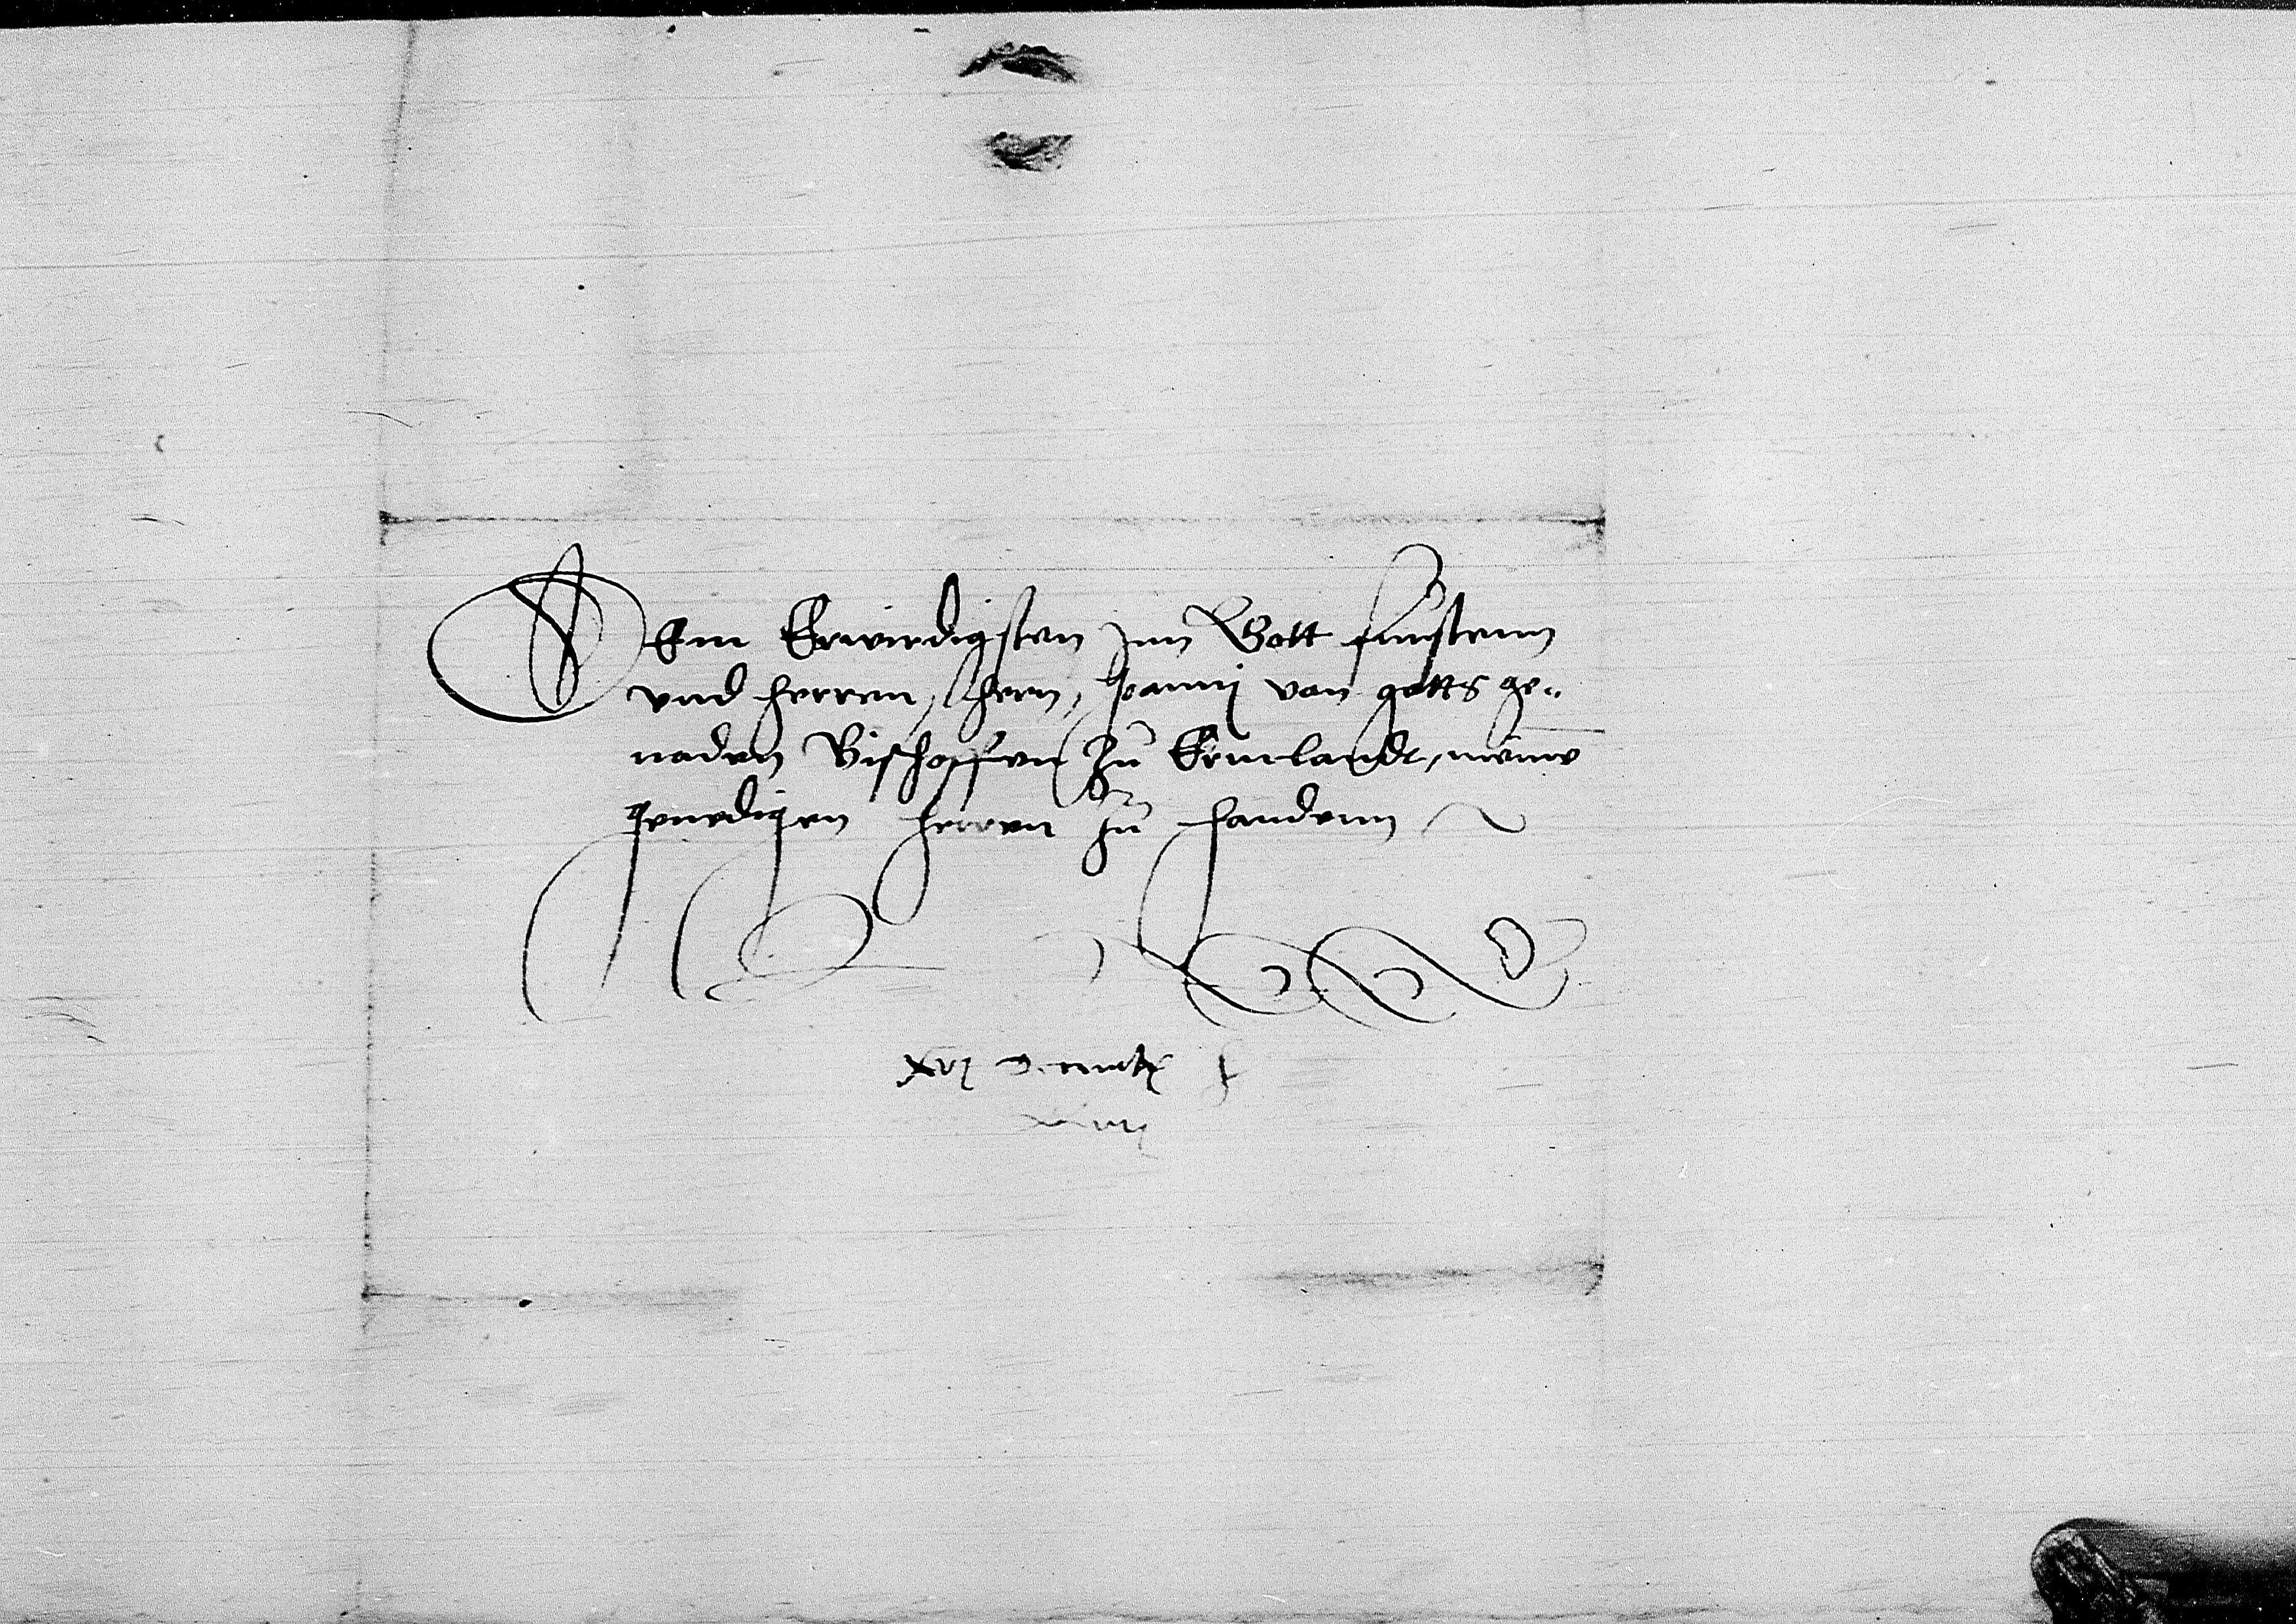 DEm Erwirdigsten Inn Gott fursten
vnd herren, hern, Joannj van gotts ge„
naden Bischoffen Zu Ermlandt, meine
genedigen herren zu handenn